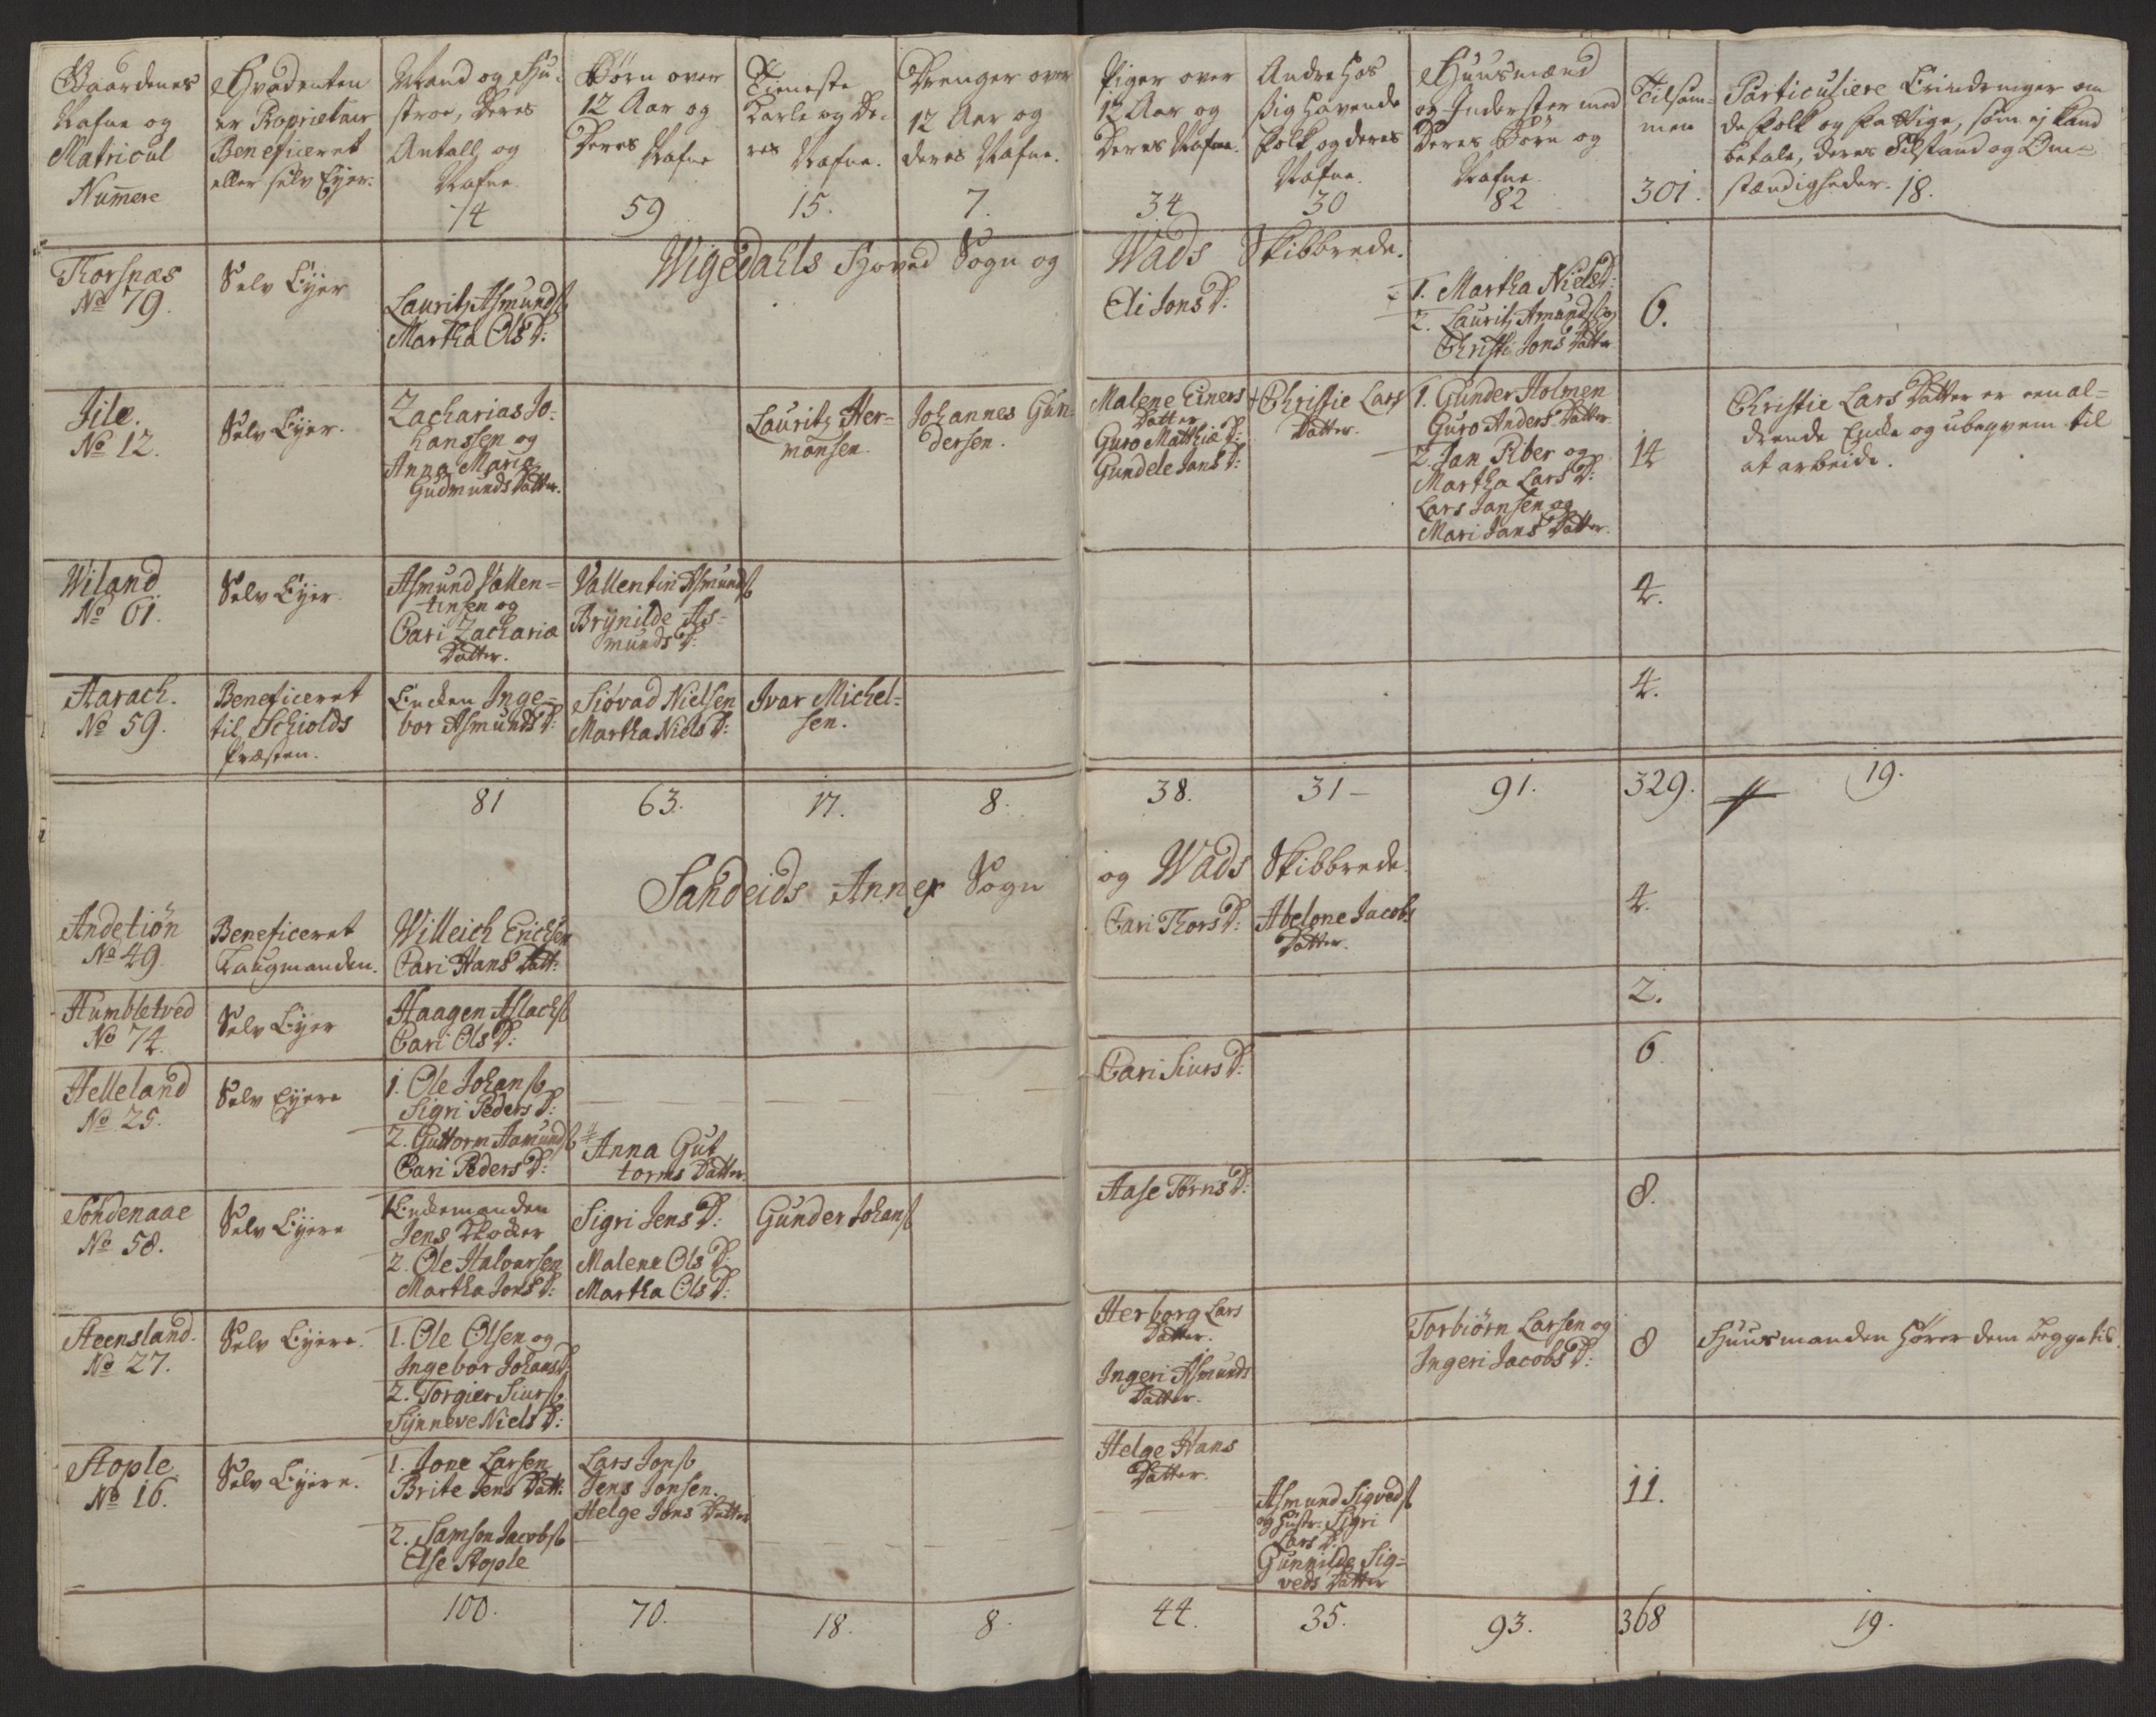 Gaardenes
Nafne og
Matricul
Numere
Hvadenten
er Proprietair
Beneficeret
eller selv Eyer.
Mand og Hu-
stroe, deres
Antall og
Nafne.
74
Børn over
12 Aar og
Deres
Nafne
59
Tieneste
Karle og De-
res
Nafne.
15.
Drenger over
12 Aar og
deres Nafne.
7.
Piger over
12 Aar og
Deres Nafne.
34
Andre hos
sig havende
Folk og deres
Nafne.
30
Huusmænd
og Inderster med
Deres Børn og
Nafne
82
Tilsam-
men
301.
Particuliere Erindringer om
de Folk og Fattige, som ej kand
betale, deres Tilstand og Om-
stændigheder. 18.
Wigedahls Hoved Sogn og Wads Skibbrede.
Thorsnæs
No 79.
Selv Eyer
Lauritz Asmunds
Martha Ols D:
Eli Jons D:
1. Martha Niels D:
2. Lauritz Amunds og
Christi Jons Datter
6.
Jile.
No 12.
Selv Eyer.
Zacharias Jo-
hanssen og
Anna Maria
Gudmunds Datter.
Lauritz Her-
mansen
Johannes Gun-
dersen.
Malene Einers
Datter
Guro Matthiæ D:
Gundele Jans D:
+ Christie Lars
Datter.
1. Gunder Holmen
Guro Anders Datter
2. Jan Piber og
Martha Lars D:
Lars Jansen og
Mari Jans Datter.
14
Christie Lars Datter er en al-
drende Encke og ubeqvem til
at arbeide.
Wiland
No 61.
Selv Eyer
Asmund Vallen-
tinsen og
Cari Zachariæ
Datter.
Vallentin Asmunds
Brynilde As-
munds D:
4.
Aarach.
No 59.
Beneficeret
til Schiolds
Præsten.
Encken Inge-
bor Asmunds D:
Siøvad Nielsen
Martha Niels D:
Ivar Michel-
sen.
4.
81
63.
17.
8.
38.
31 -
91.
329.
19.
Sandeids Annex Sogn og Wads Skibbrede.
Andetiøn
No 49
Beneficeret
Laugmanden.
Willeich Erichsen
Cari Hans Datt:
Cari Thors D:
Abelone Jacobs
Datter.
4.
Humbletved
No 74.
Selv Eyer
Haagen Aslachs
Cari Ols D:
2.
Helleland
No 25.
Selv Eyere
1. Ole Johans
Sigri Peders D:
2. Guttorm Aamunds
Cari Peders D:
Anna Gut
torms Datter.
Cari Siurs D:
6
Söndenaae
No 58.
Selv Eyere
1 Enckemanden
Jens Skocker
2. Ole Halvorsen
Martha Jons D:
Sigri Jens D:
Malene Ols D:
Martha Ols D:
Gunder Johans
Aase Törns D:
8.
Steensland.
No 27.
Selv Eyere.
1. Ole Olsen og
Ingebor Johans D
2. Torgier Siurs
Synneve Niels D:
Herborg Lars
Datter.
Ingeri Asmunds
Datter.
Torbiörn Larsen og
Ingeri Jacobs D:
8
Huusmanden hører dem begge til.
Stople
No 16.
Selv Eyere.
1. Jone Larsen
Brite Jens Datt:
2. Samson Jacobs
Else Stople
Lars Jons
Jens Jonsen.
Helge Jons Datter
Helge Hans
Datter.
Asmund Sigveds
og Hustr: Sigri
Lars D:
Gunnilde Sig-
veds Datter
11.
100.
70.
18.
8.
44.
35.
93.
368
19.